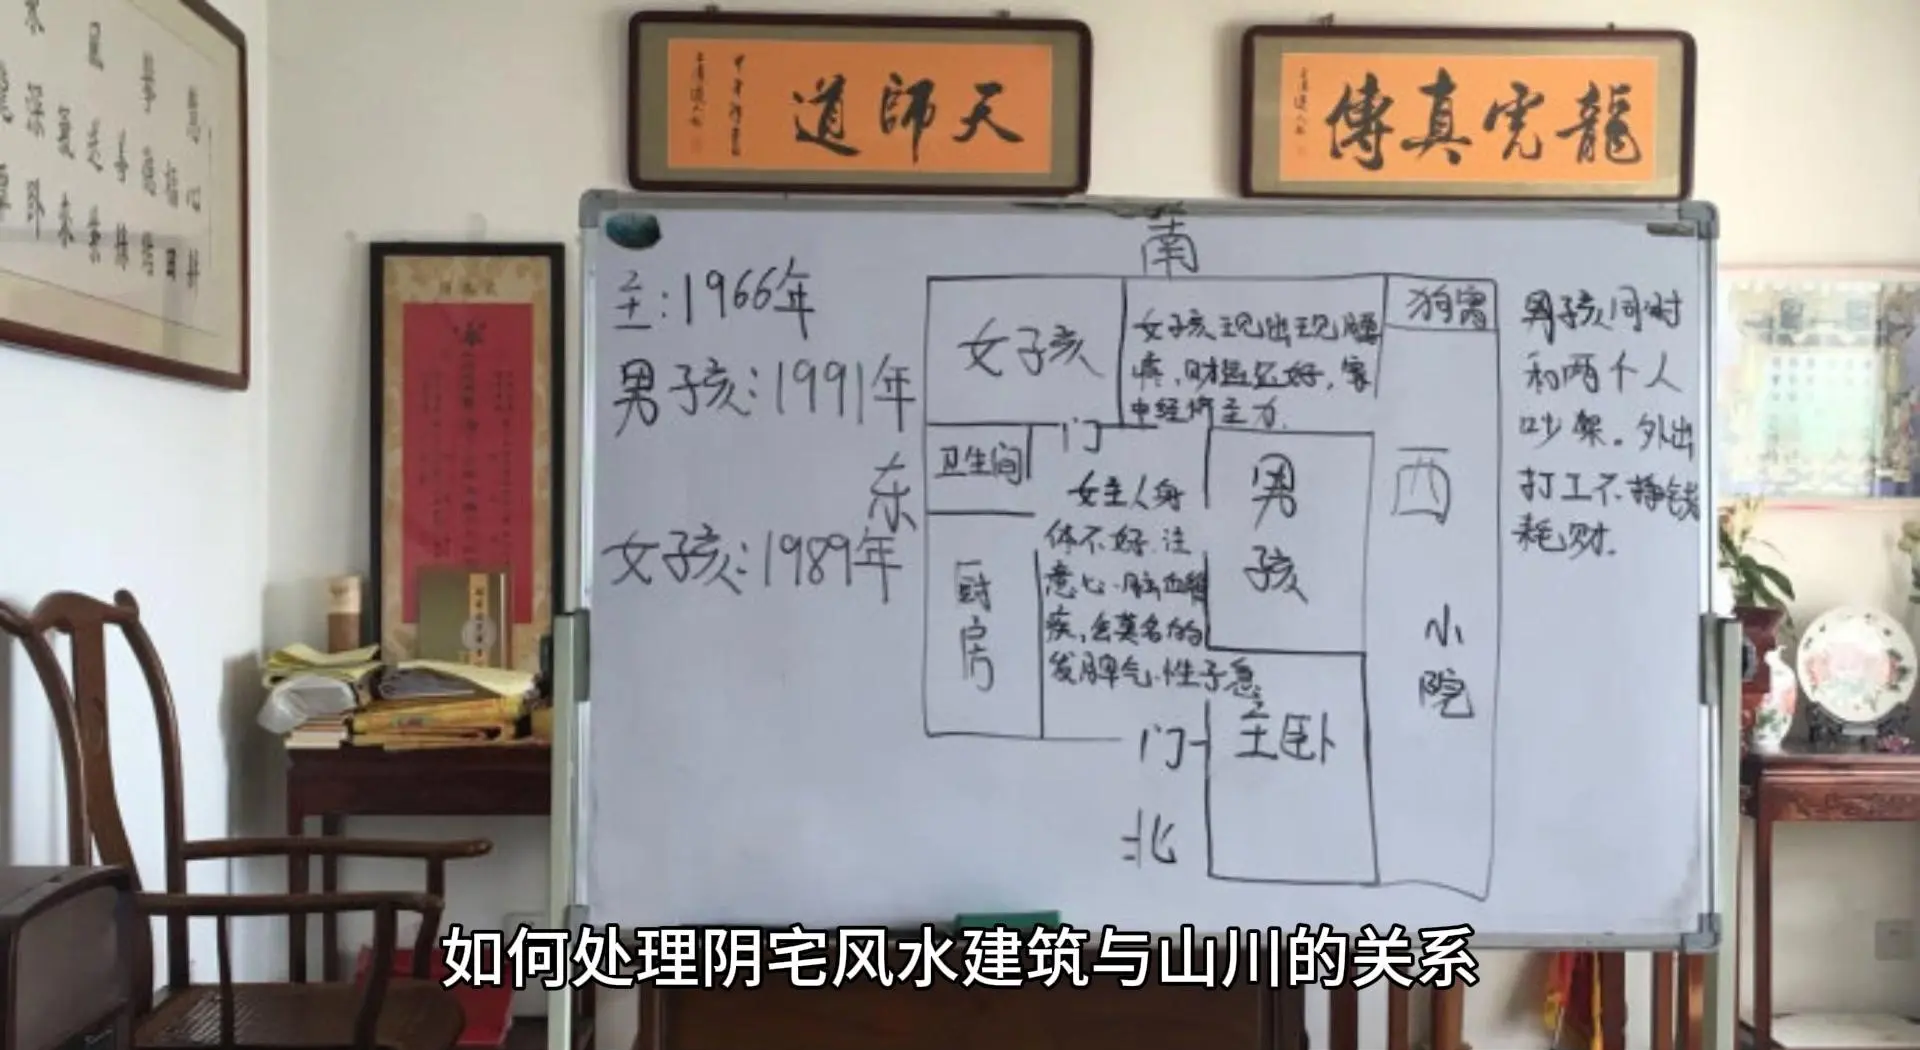 天師道
龍虎真傳
南
主:1966年
男孩:1991年
女孩:1989年
东
女孩
女孩现出现腰
疼,财运还好,家
中经济主力.
狗窝
卫生间
门
女主人身
体不好.注
意心.脑血管
疾,会莫名的
发脾气.性子急
厨房
男孩
主卧
门
北
西
小院
男孩同时
和两个人
吵架。外出
打工不挣钱
耗财.
如何处理阴宅风水建筑与山川的关系